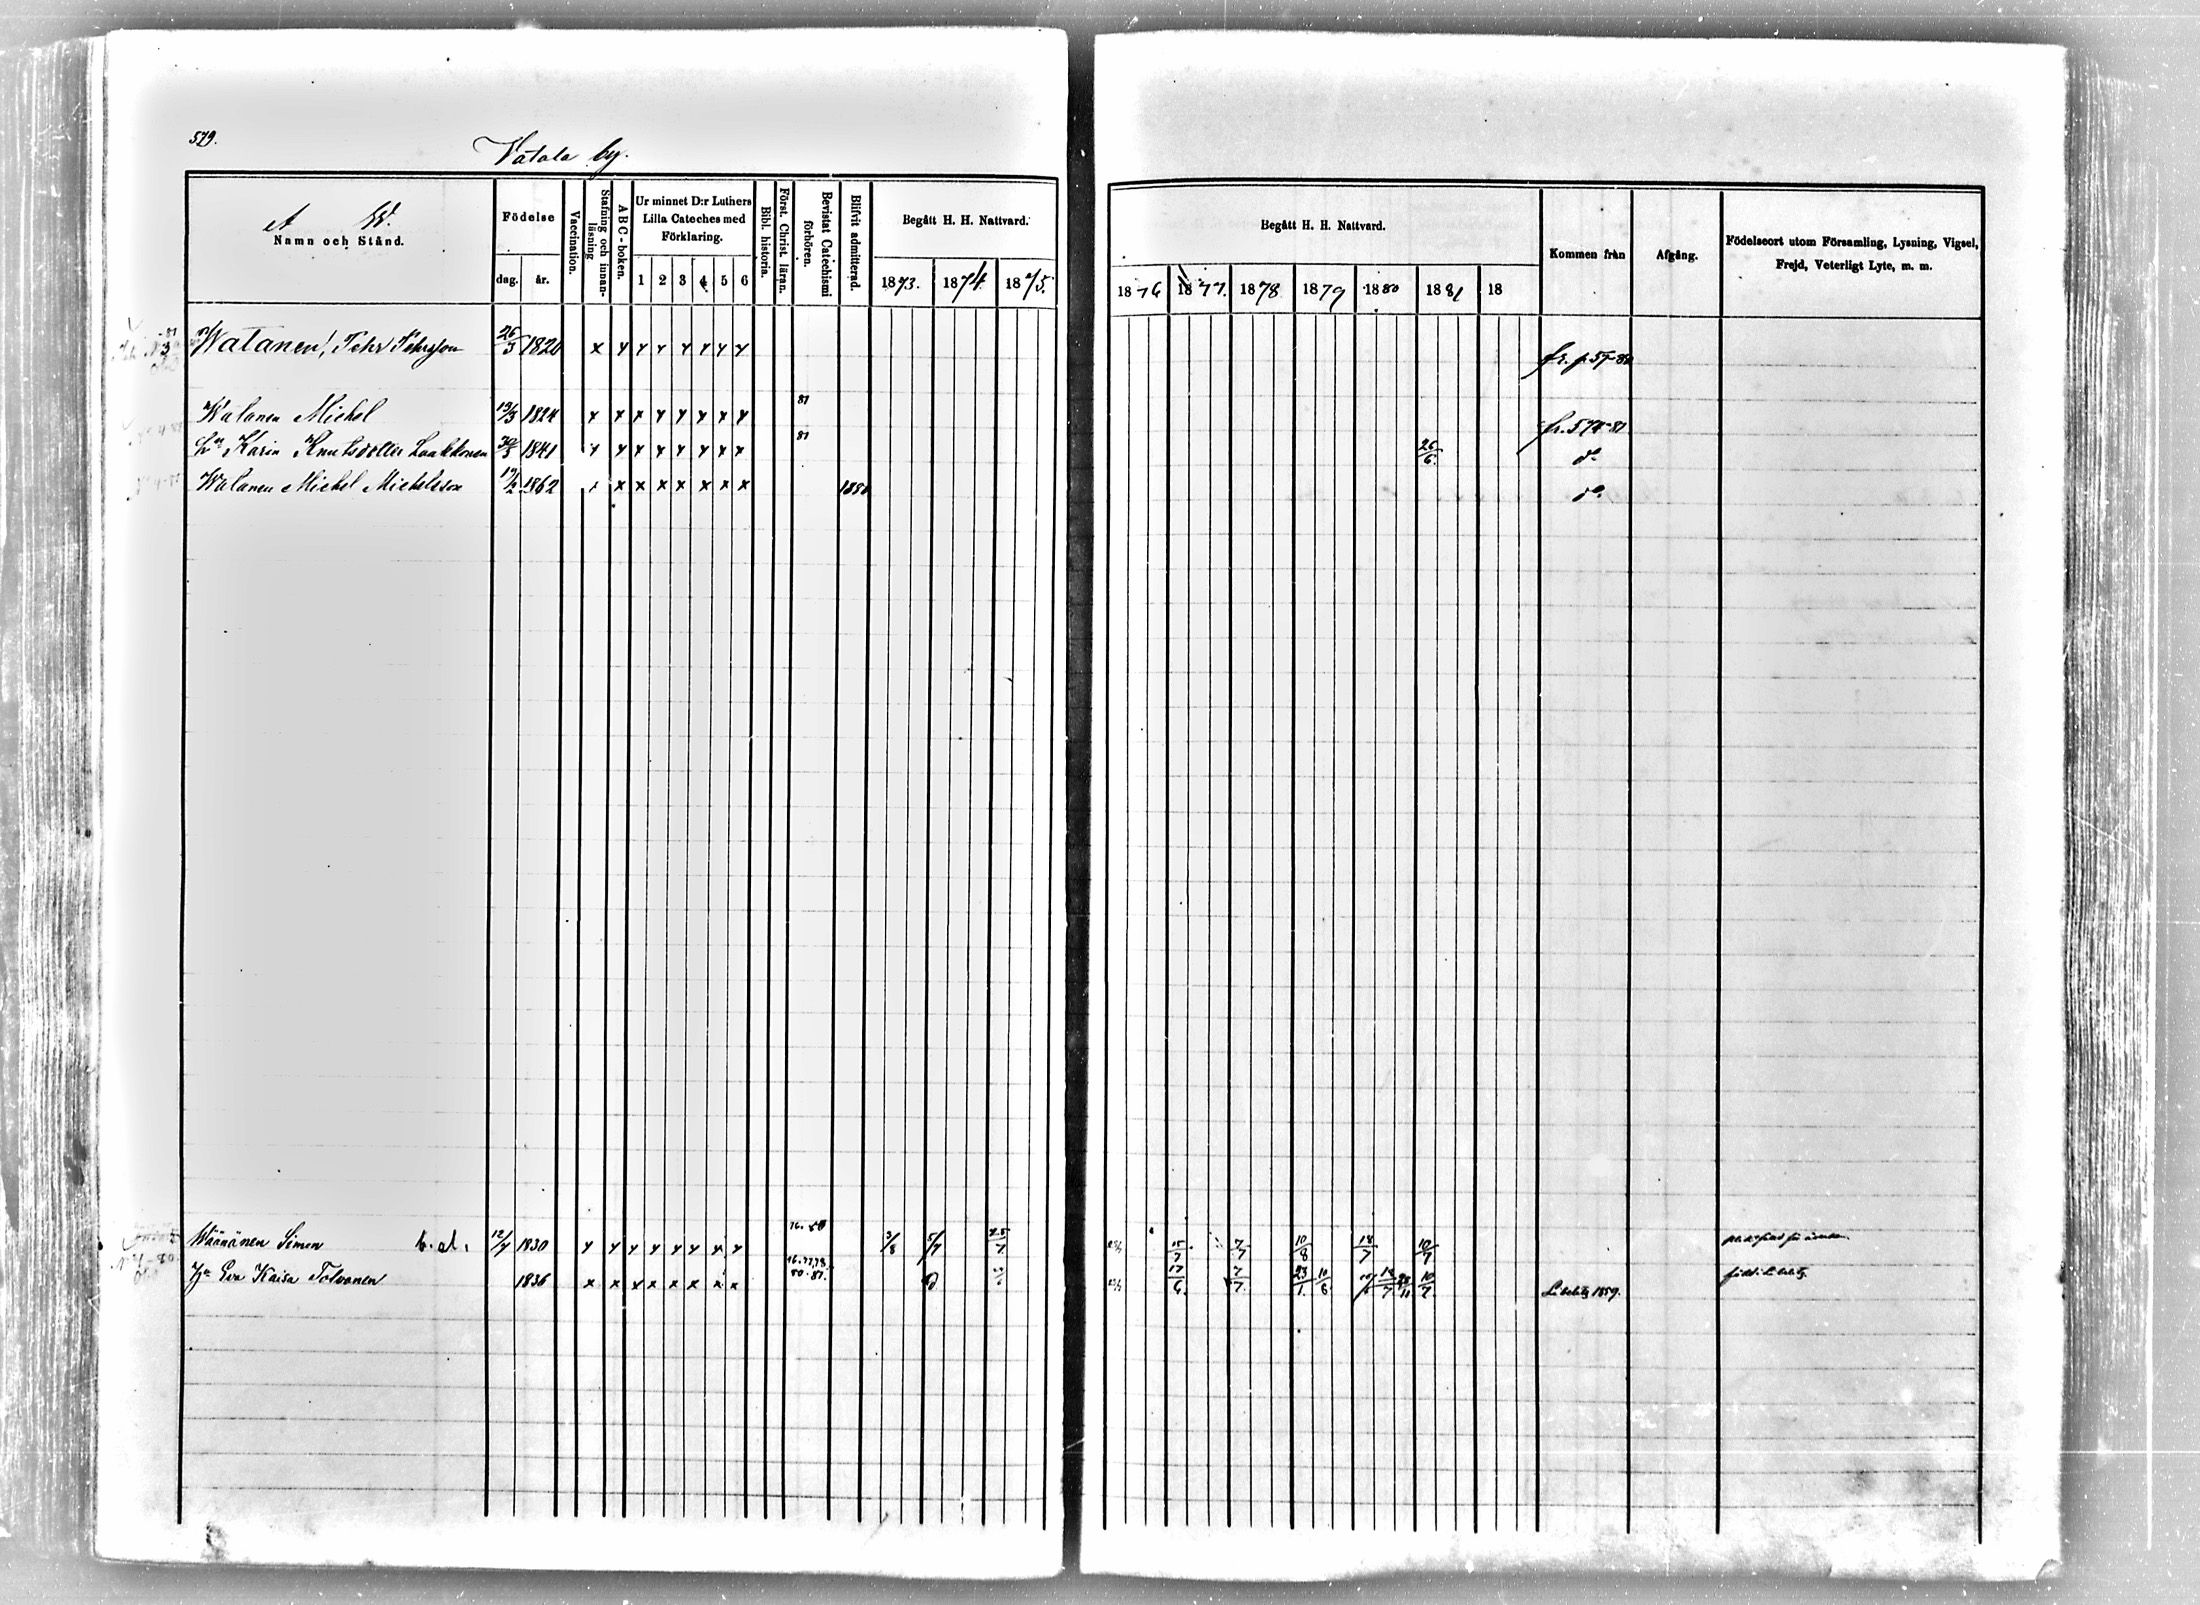 579.
Vatala by.
A W.
Namn och Stånd.
Födelse
dag. år.
Vaccination.
Stafning och innan-läsning
ABC-boken.
Ur minnet D:r Luthers Lilla Cateches med Förklaring.
1 2 3 4 5 6
Bibl. historia.
Först. Christ. läran.
Bevistat Catechismi förhören.
Blifvit admitterad.
Begått H. H. Nattvard.
1873. 1874. 1875.
Begått H. H. Nattvard.
1876 1877. 1878 1879 1880 1881 18
Kommen från
Afgång.
Födelseort utom Församling, Lysning, Vigsel, Frejd, Veterligt Lyte, m. m.
Watanen, Pehr Pehrsson 26/3 1820 x x x x x x x x
Watanen Michel 19/3 1824 x x x x x x x x 81 fr. 574-81
Karin Knutsdotter Laakkonen 30/3 1841 x x x x x x x x 81 26/6. do
Watanen Michel Michelsson 1862 x x x x x x x x 1880 do.
Wäänänen Simon 12/7 1830 x x x x x x x x 3/8 5/7 25/7 15/7 7/7 10/8 18/7 10/7
Hu Eva Kaisa Tolvanen 1836 x x x x x x x x 76.77,78. 80.81. 17/6. 7/7. 23/1. 10/8 10/7 Libelitz 1859. född i Libelitz